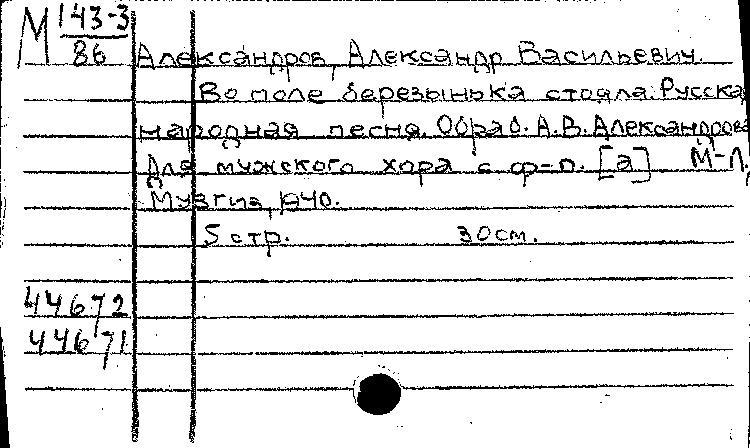 М 143-3
86
Александров, Александр Васильевич.
Во поле березынька стояла. Русска
народная песня. Обраб. А.В. Александрова
для мужского хора с ф-п. [а] М-Л,
Музгиз, 1940.
5 стр. 30 см.
44672
44671